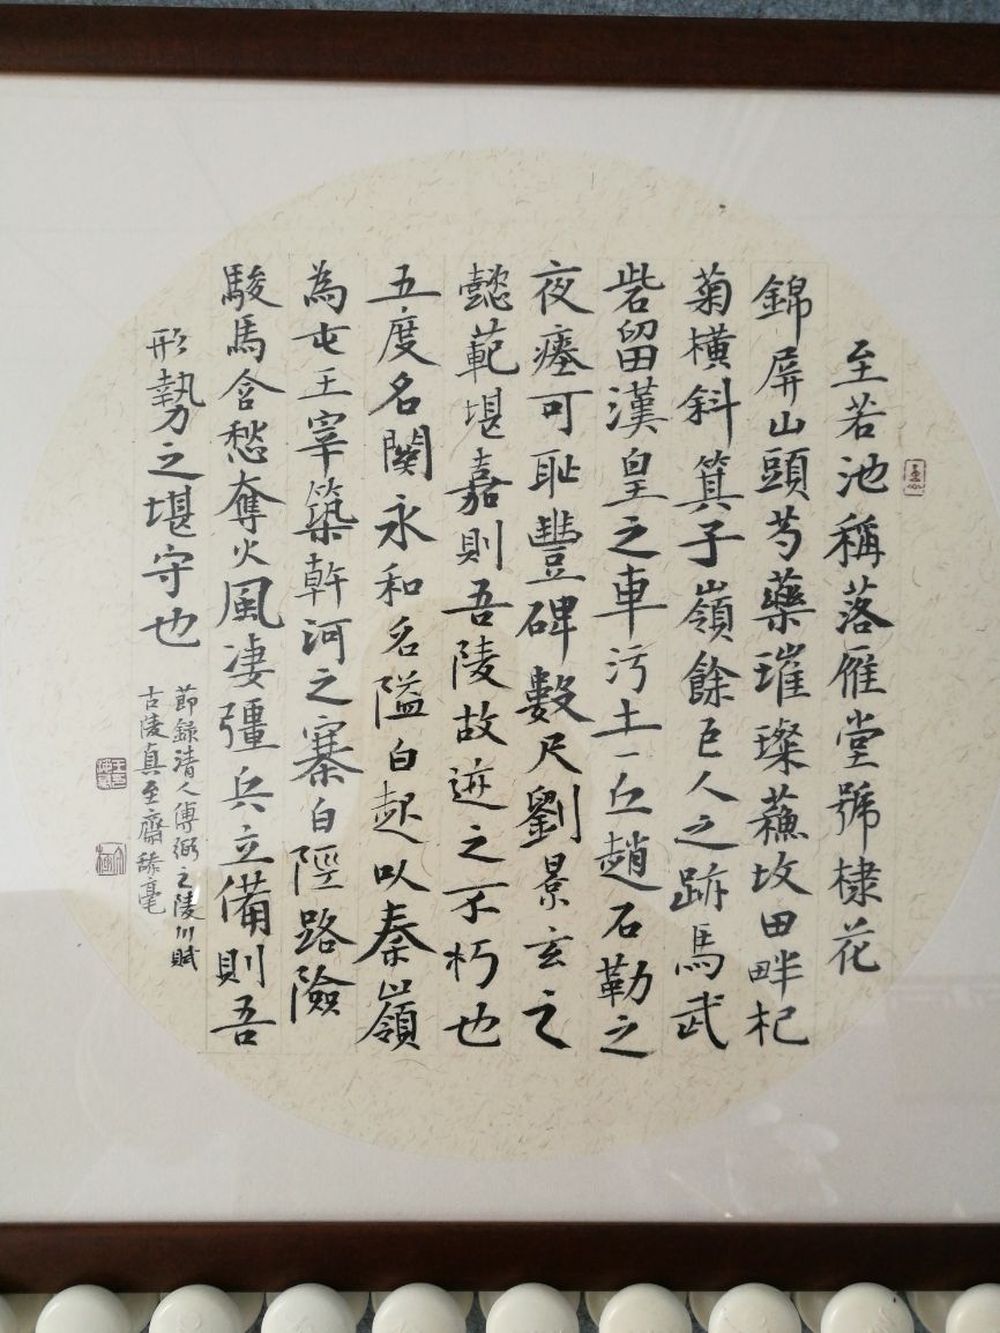 至若池稱落雁堂號棣花
錦屏山頭芍藥璀璨蘓坟田畔杞
菊橫斜箕子嶺餘巨人之跡馬武
砦留漢皇之車污土一丘趙石勒之
夜瘞可恥豐碑數尺劉景玄之
懿範堪嘉則吾陵故迹之不朽也
五度名關永和名隘白起以秦嶺
為屯王宰築軒河之寨白陘路險
駿馬含愁奪火風凄彊兵立備則吾
形勢之堪守也
節錄清人傅弼之陵川賦
古陵真至齋舔毫